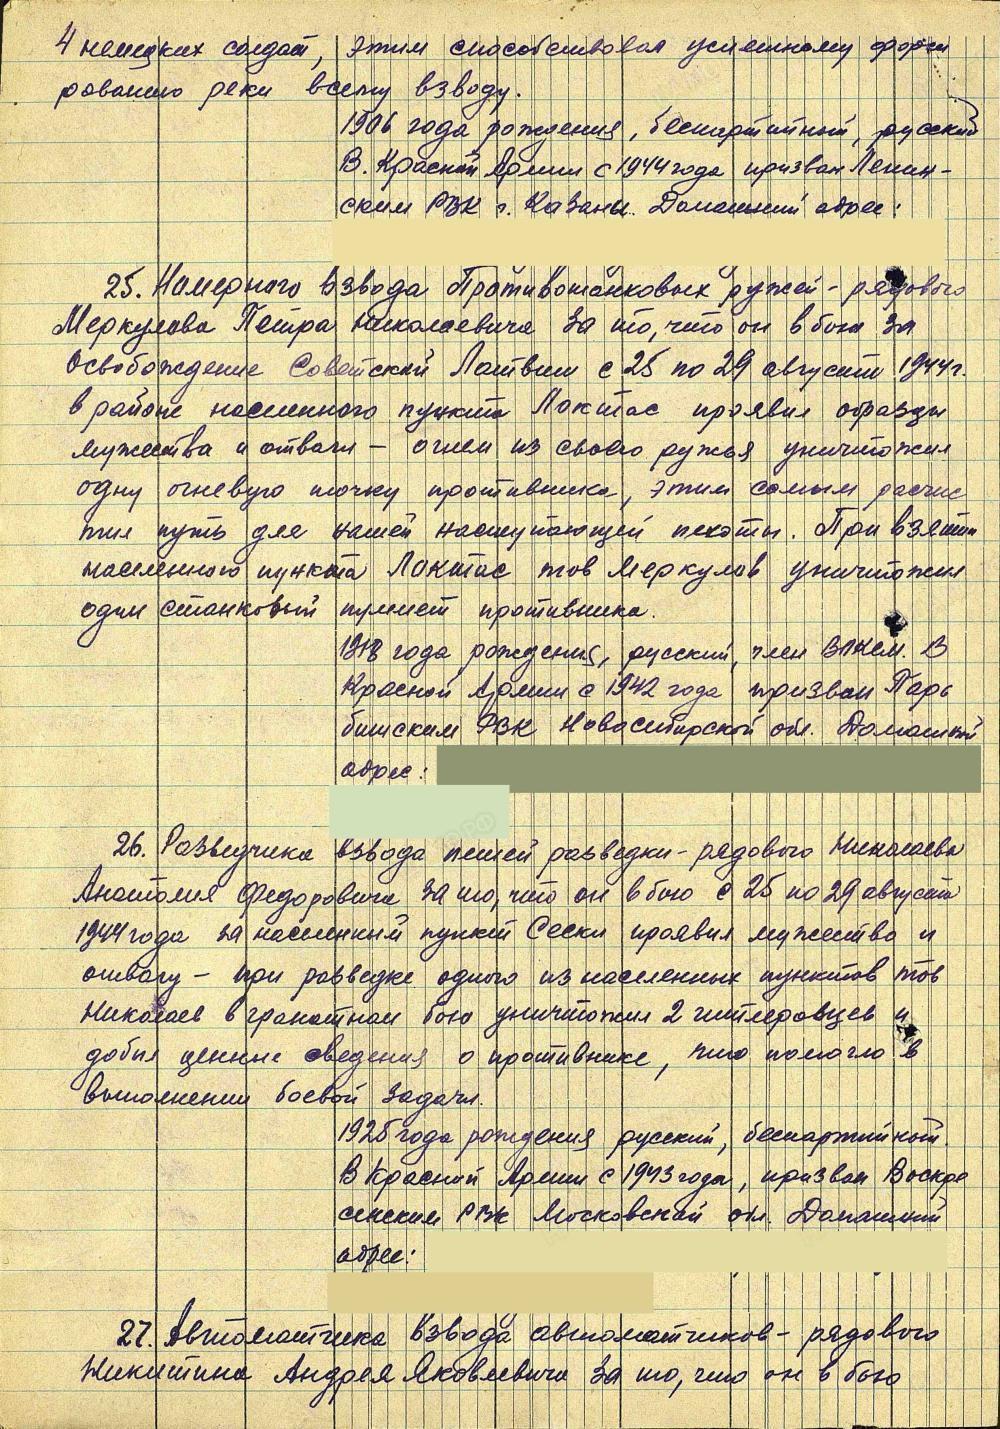 4 немецких солдат, этим способствовал успешному форси
рованию реки всему взводу.
1906 года рождения, беспартийный, русский
В. Красной Армии с 1944 года призван Ленин-
ским РВК г. Казань. Домашний адрес:
25. Номерного взвода Противотанковых ружей - рядового
Меркулова Петра Николаевича за то, что он в бою за
освобождение Советской Латвии с 25 по 29 августа 1944г.
в районе населенного пункта Локтас проявил образцы
мужества и отваги - огнем из своего ружья уничтожил
одну огневую точку противника, этим самым расчис
тил путь для нашей наступающей пехоты. При взятии
населенного пункта Локтас тов Меркулов уничтожил
один станковый пулмет противника.
1918 года рождения, русский, член ВЛКСМ. В
Красной Армии с 1942 года призван Парб
бигским РВК Новосибирской обл. Домашний
адрес:
26. Разведчика взвода пешей разведки - рядового Николаева
Анатолия Федоровича за то, что он в бою с 25 по 29 августа
1944 года за населенный пункт Сески проявил мужество и
отвагу - при разведке одного из населенных пунктов тов
Николаев в гранатном бою уничтожил 2 гитлеровцев и
добыл ценные сведения о противнике, что помогло в
выполнении боевой задачи.
1925 года рождения русский, беспартийный.
В Красной Армии с 1943 года, призван Воскре
сенским РВК Московской обл. Домашний
адрес:
27. Автоматчика взвода автоматчиков - рядового
Никитина Андрея Яковлевича за то, что он в бою